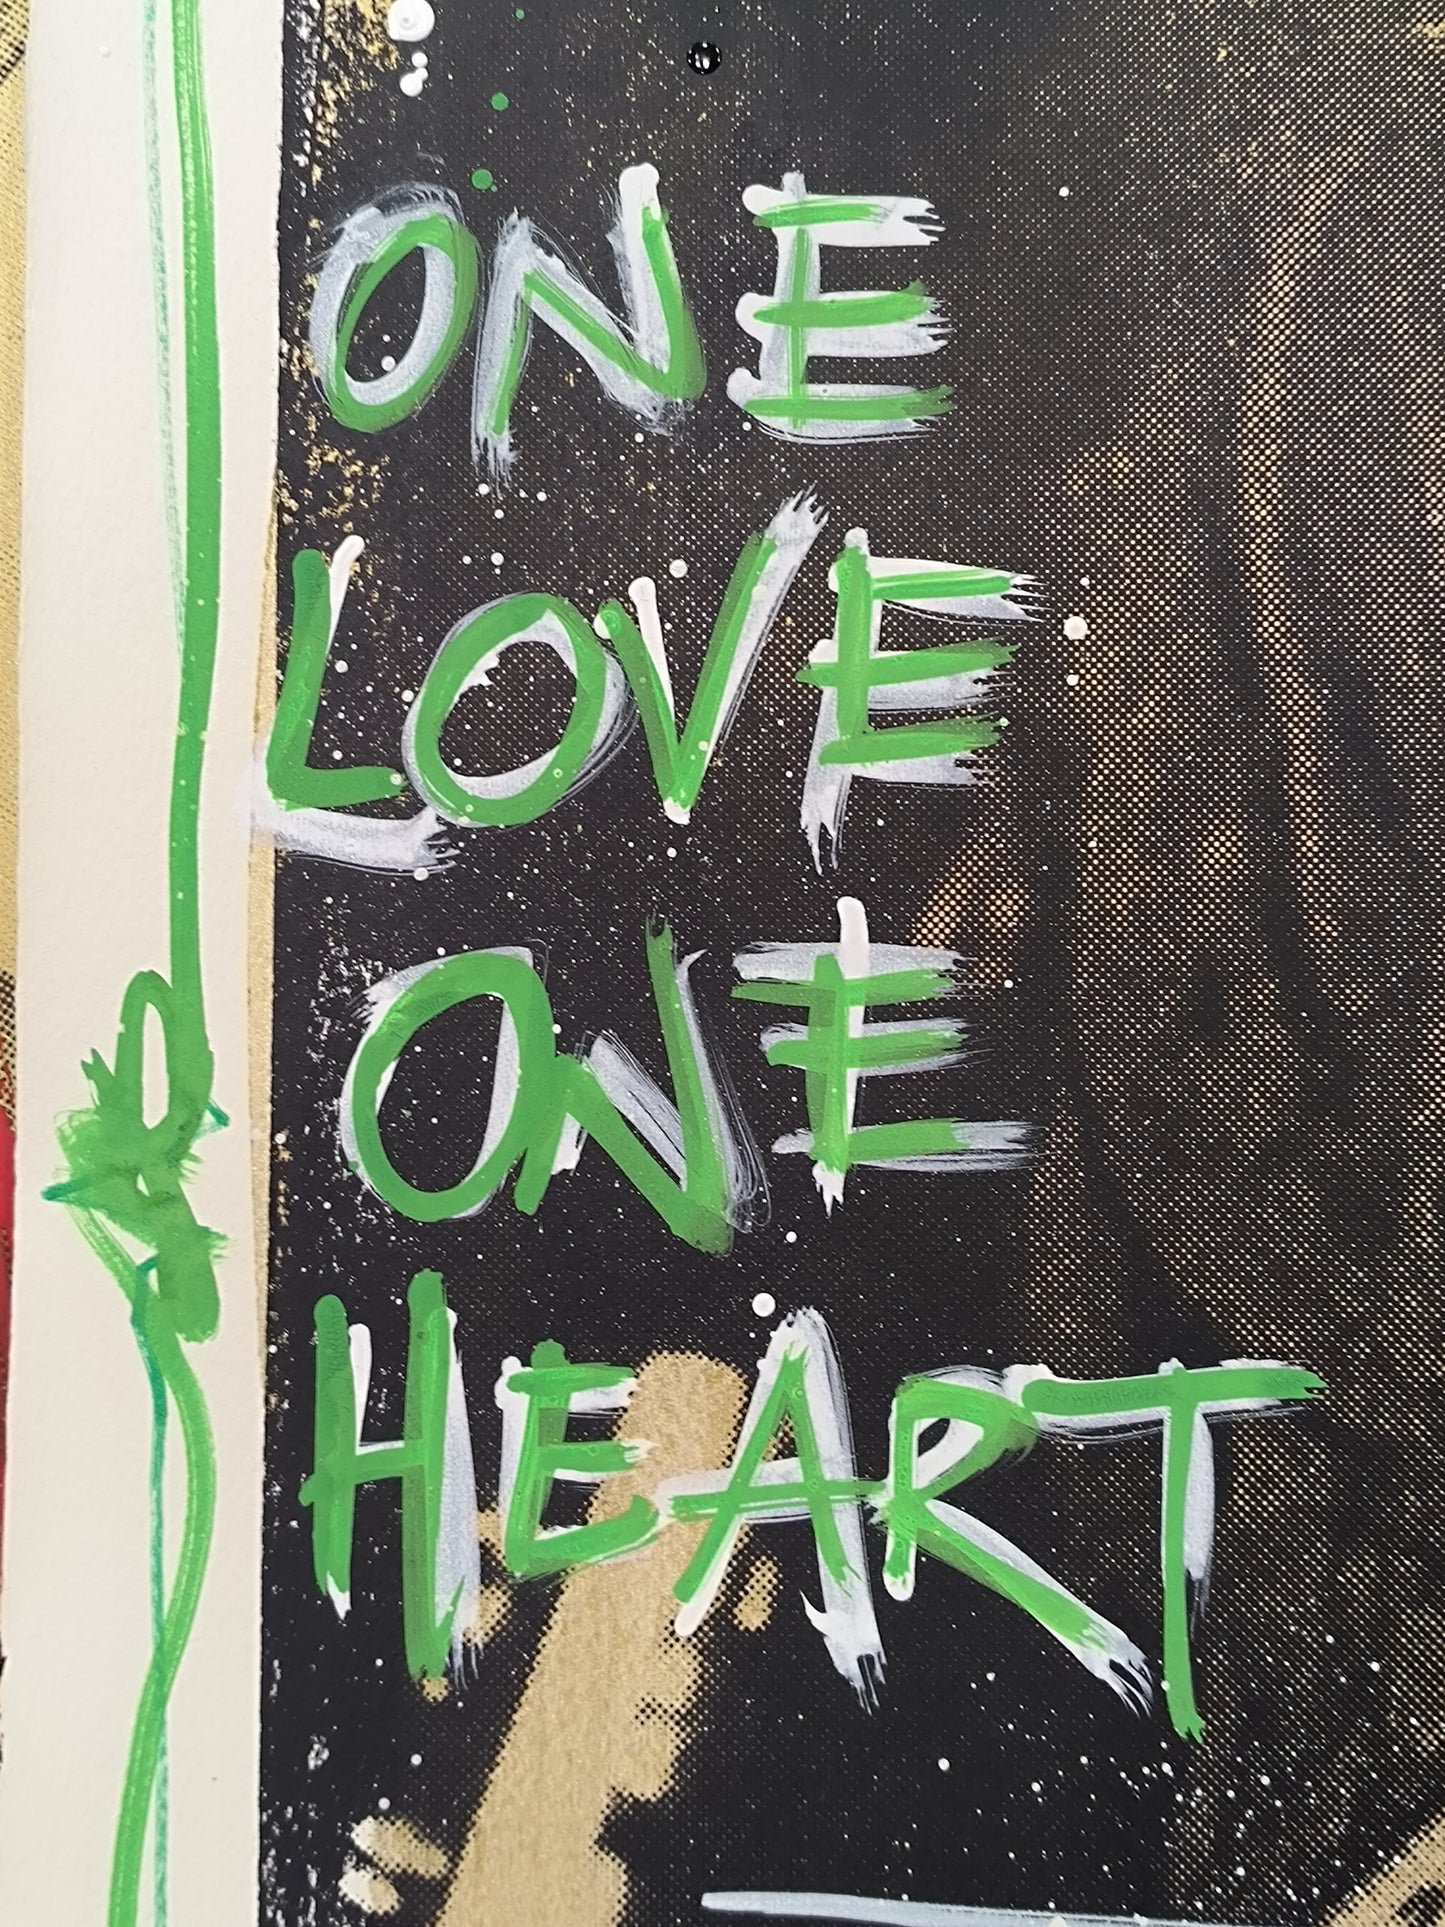 ONE
LOVE
ONE
HEART